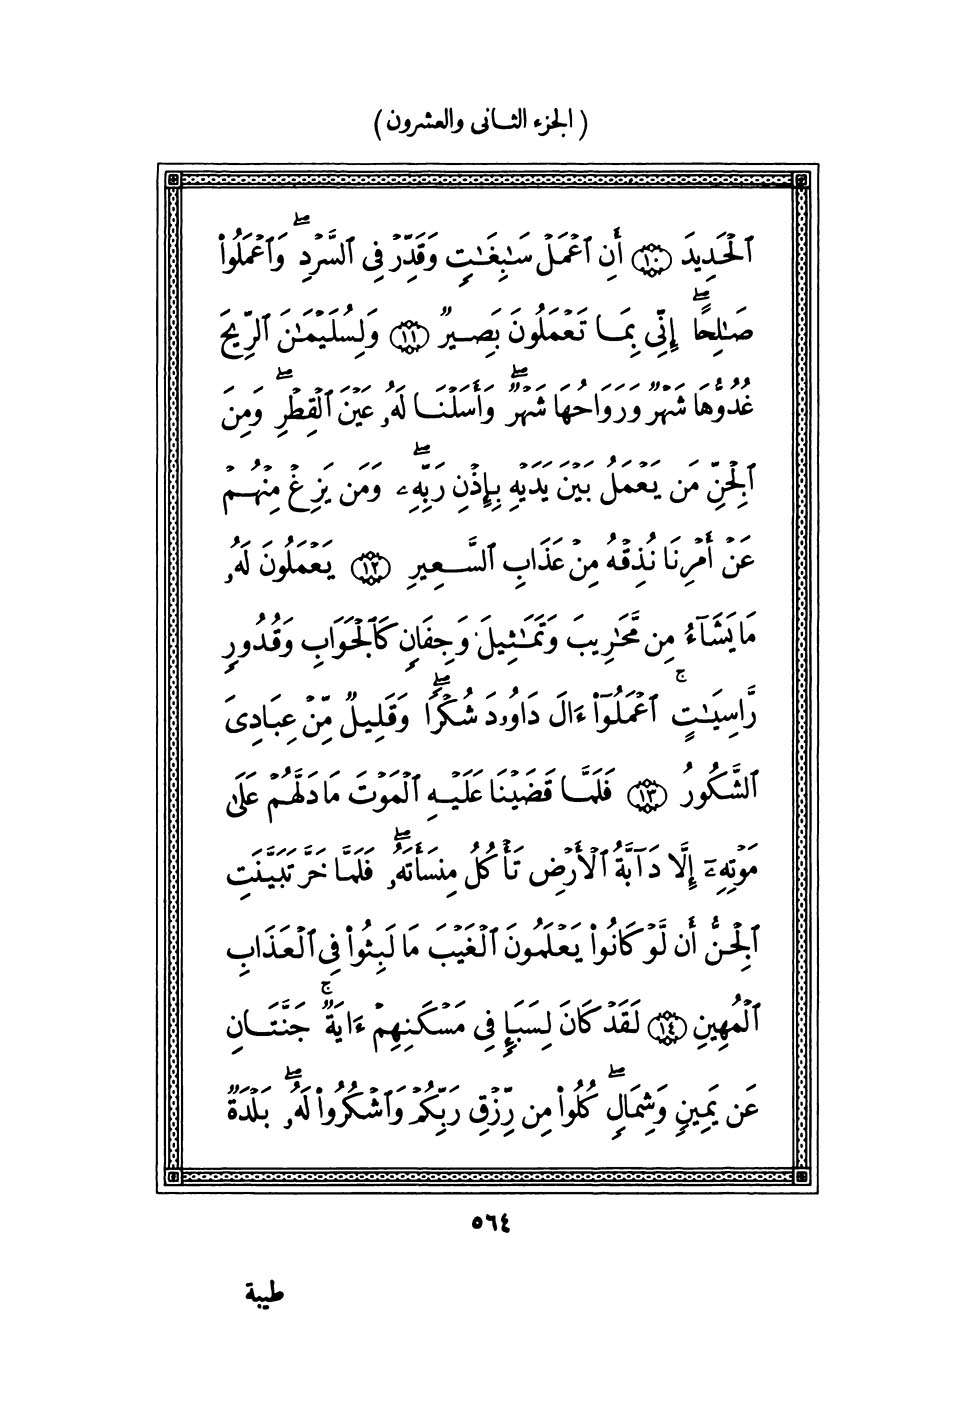 ( الجزء الثانى والعشرون )
ٱلْحَدِيدَ ۝١٠ أَنِ ٱعْمَلْ سَٰبِغَٰتٍ وَقَدِّرْ فِى ٱلسَّرْدِ ۖ وَٱعْمَلُوا۟
صَٰلِحًا ۖ إِنِّى بِمَا تَعْمَلُونَ بَصِيرٌ ۝١١ وَلِسُلَيْمَٰنَ ٱلرِّيحَ
غُدُوُّهَا شَهْرٌ وَرَوَاحُهَا شَهْرٌ ۖ وَأَسَلْنَا لَهُۥ عَيْنَ ٱلْقِطْرِ ۖ وَمِنَ
ٱلْجِنِّ مَن يَعْمَلُ بَيْنَ يَدَيْهِ بِإِذْنِ رَبِّهِۦ ۖ وَمَن يَزِغْ مِنْهُمْ
عَنْ أَمْرِنَا نُذِقْهُ مِنْ عَذَابِ ٱلسَّعِيرِ ۝١٢ يَعْمَلُونَ لَهُۥ
مَا يَشَآءُ مِن مَّحَٰرِيبَ وَتَمَٰثِيلَ وَجِفَانٍ كَٱلْجَوَابِ وَقُدُورٍ
رَّاسِيَٰتٍ ۚ ٱعْمَلُوٓا۟ ءَالَ دَاوُۥدَ شُكْرًا ۖ وَقَلِيلٌ مِّنْ عِبَادِىَ
ٱلشَّكُورُ ۝١٣ فَلَمَّا قَضَيْنَا عَلَيْهِ ٱلْمَوْتَ مَا دَلَّهُمْ عَلَىٰ
مَوْتِهِۦٓ إِلَّا دَآبَّةُ ٱلْأَرْضِ تَأْكُلُ مِنسَأَتَهُۥ ۖ فَلَمَّا خَرَّ تَبَيَّنَتِ
ٱلْجِنُّ أَن لَّوْ كَانُوا۟ يَعْلَمُونَ ٱلْغَيْبَ مَا لَبِثُوا۟ فِى ٱلْعَذَابِ
ٱلْمُهِينِ ۝١٤ لَقَدْ كَانَ لِسَبَإٍ فِى مَسْكَنِهِمْ ءَايَةٌ ۚ جَنَّتَانِ
عَن يَمِينٍ وَشِمَالٍ ۖ كُلُوا۟ مِن رِّزْقِ رَبِّكُمْ وَٱشْكُرُوا۟ لَهُۥ ۖ بَلْدَةٌ
٥٦٤
طيبة